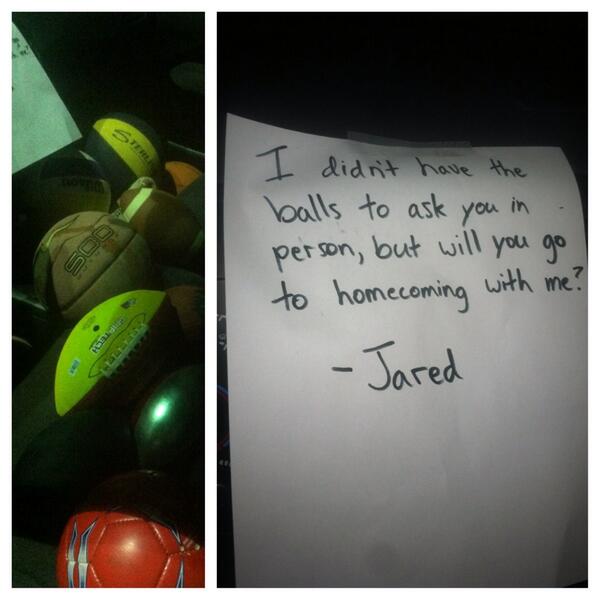 STERLI
Wilson
500
I didn't have the
balls to ask you in
person, but will you go
to homecoming with me?
- Jared